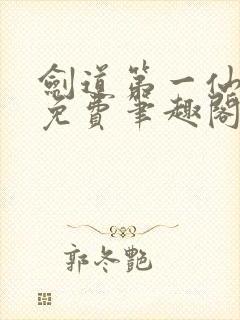 劍道第一仙
免費筆趣閣
郭冬艷